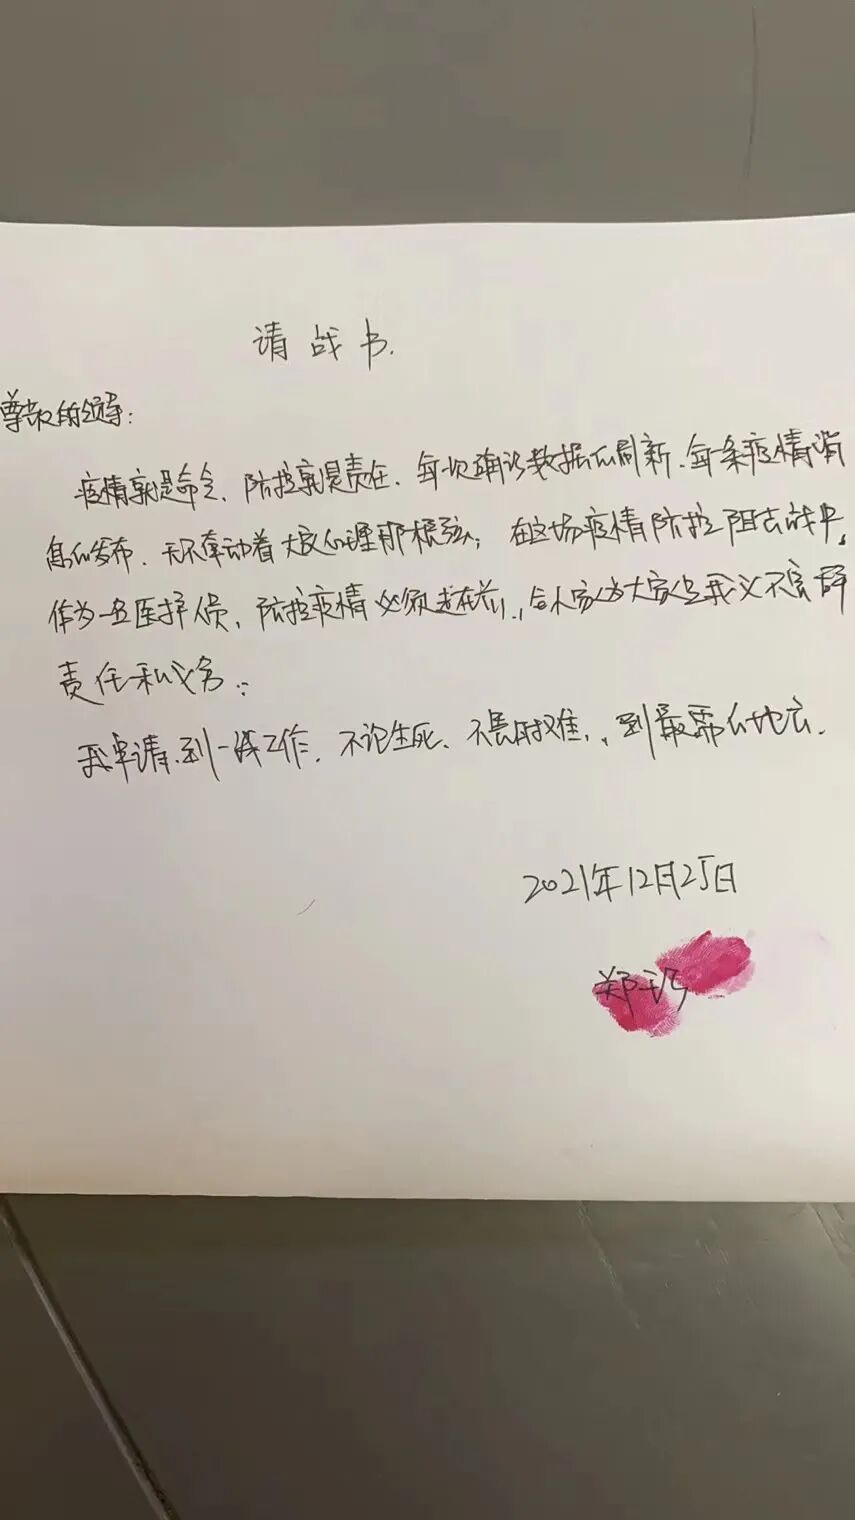 请战书.
尊敬的领导:
疫情就是命令、防控就是责任、每次确诊数据的刷新、每条疫情消
息的发布、无不牵动着大家心理那根弦; 在这场疫情防控阻击战中,
作为一名医护人员、防控疫情必须走在前, 舍小家为大家是我义不容辞
责任和义务.
我申请、到一线工作、不论生死、不畏艰难、到最需的地方.
2021年12月25日
郑